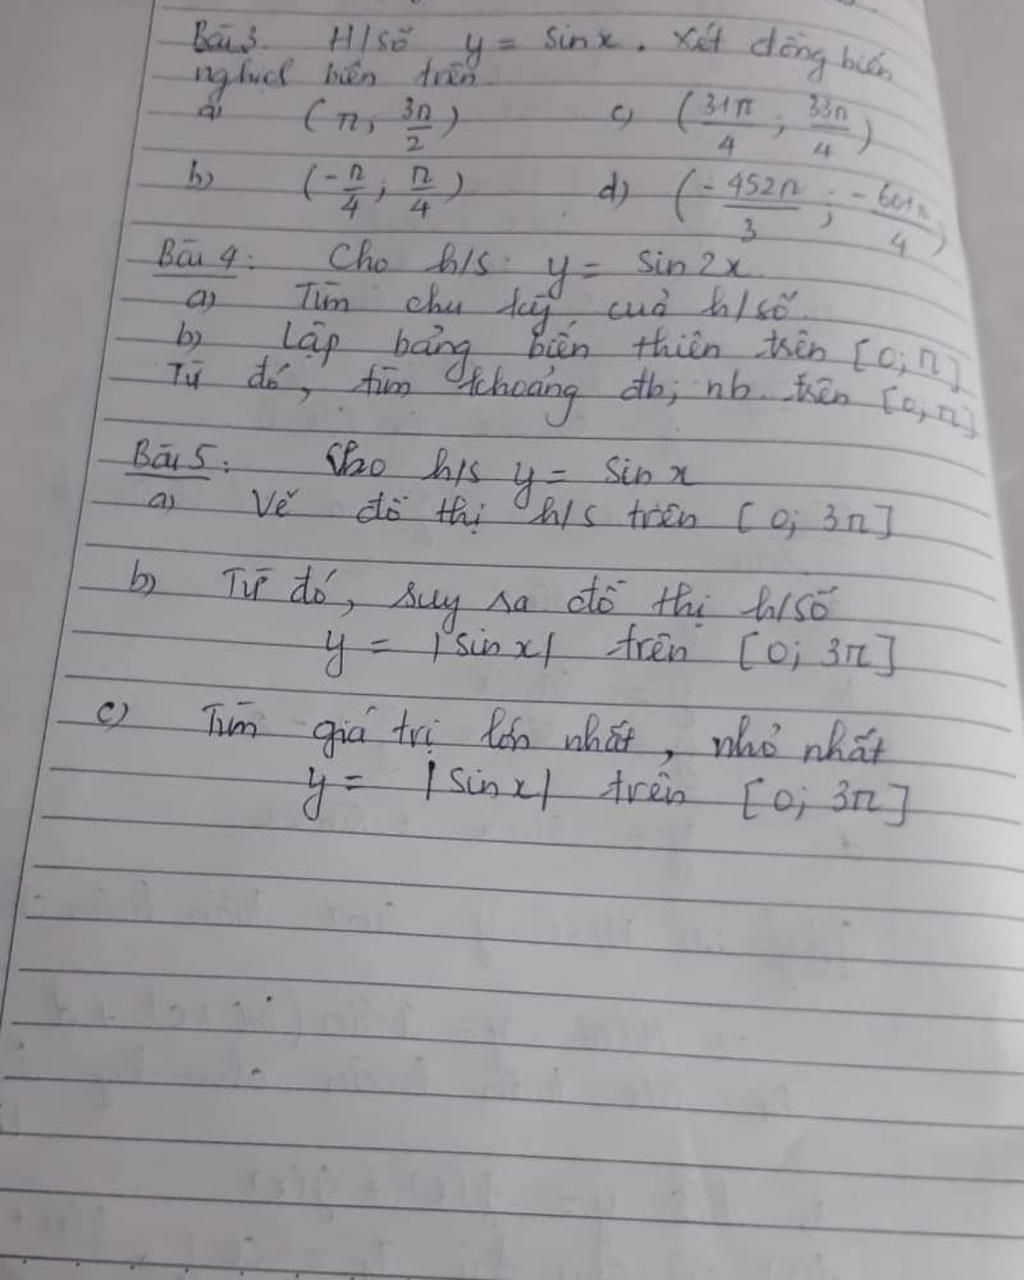 Bài 3. H/số y = sinx. Xét đồng biến
nghịch biến trên
a) (π; 3π/2) c) (31π/4; 33π/4)
b) (-π/4; π/4) d) (-452π/3; -601π/4)
Bài 4: Cho h/s: y = sin2x
a) Tìm chu kỳ của h/số.
b) Lập bảng biến thiên trên [0; π]
Từ đó, tìm khoảng đb; nb trên [0; π]
Bài 5: Cho h/s y = sinx
a) Vẽ đồ thị h/s trên [0; 3π]
b) Từ đó, suy ra đồ thị h/số
y = |sinx| trên [0; 3π]
c) Tìm giá trị lớn nhất, nhỏ nhất
y = |sinx| trên [0; 3π]